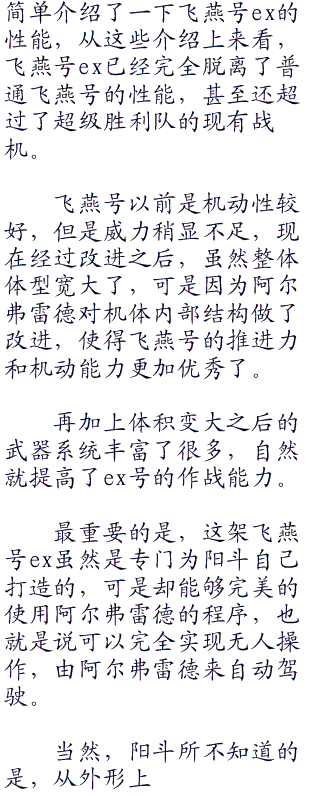 简单介绍了一下飞燕号ex的
性能，从这些介绍上来看，
飞燕号ex已经完全脱离了普
通飞燕号的性能，甚至还超
过了超级胜利队的现有战
机。
飞燕号以前是机动性较
好，但是威力稍显不足，现
在经过改进之后，虽然整体
体型宽大了，可是因为阿尔
弗雷德对机体内部结构做了
改进，使得飞燕号的推进力
和机动能力更加优秀了。
再加上体积变大之后的
武器系统丰富了很多，自然
就提高了ex号的作战能力。
最重要的是，这架飞燕
号ex虽然是专门为阳斗自己
打造的，可是却能够完美的
使用阿尔弗雷德的程序，也
就是说可以完全实现无人操
作，由阿尔弗雷德来自动驾
驶。
当然，阳斗所不知道的
是，从外形上